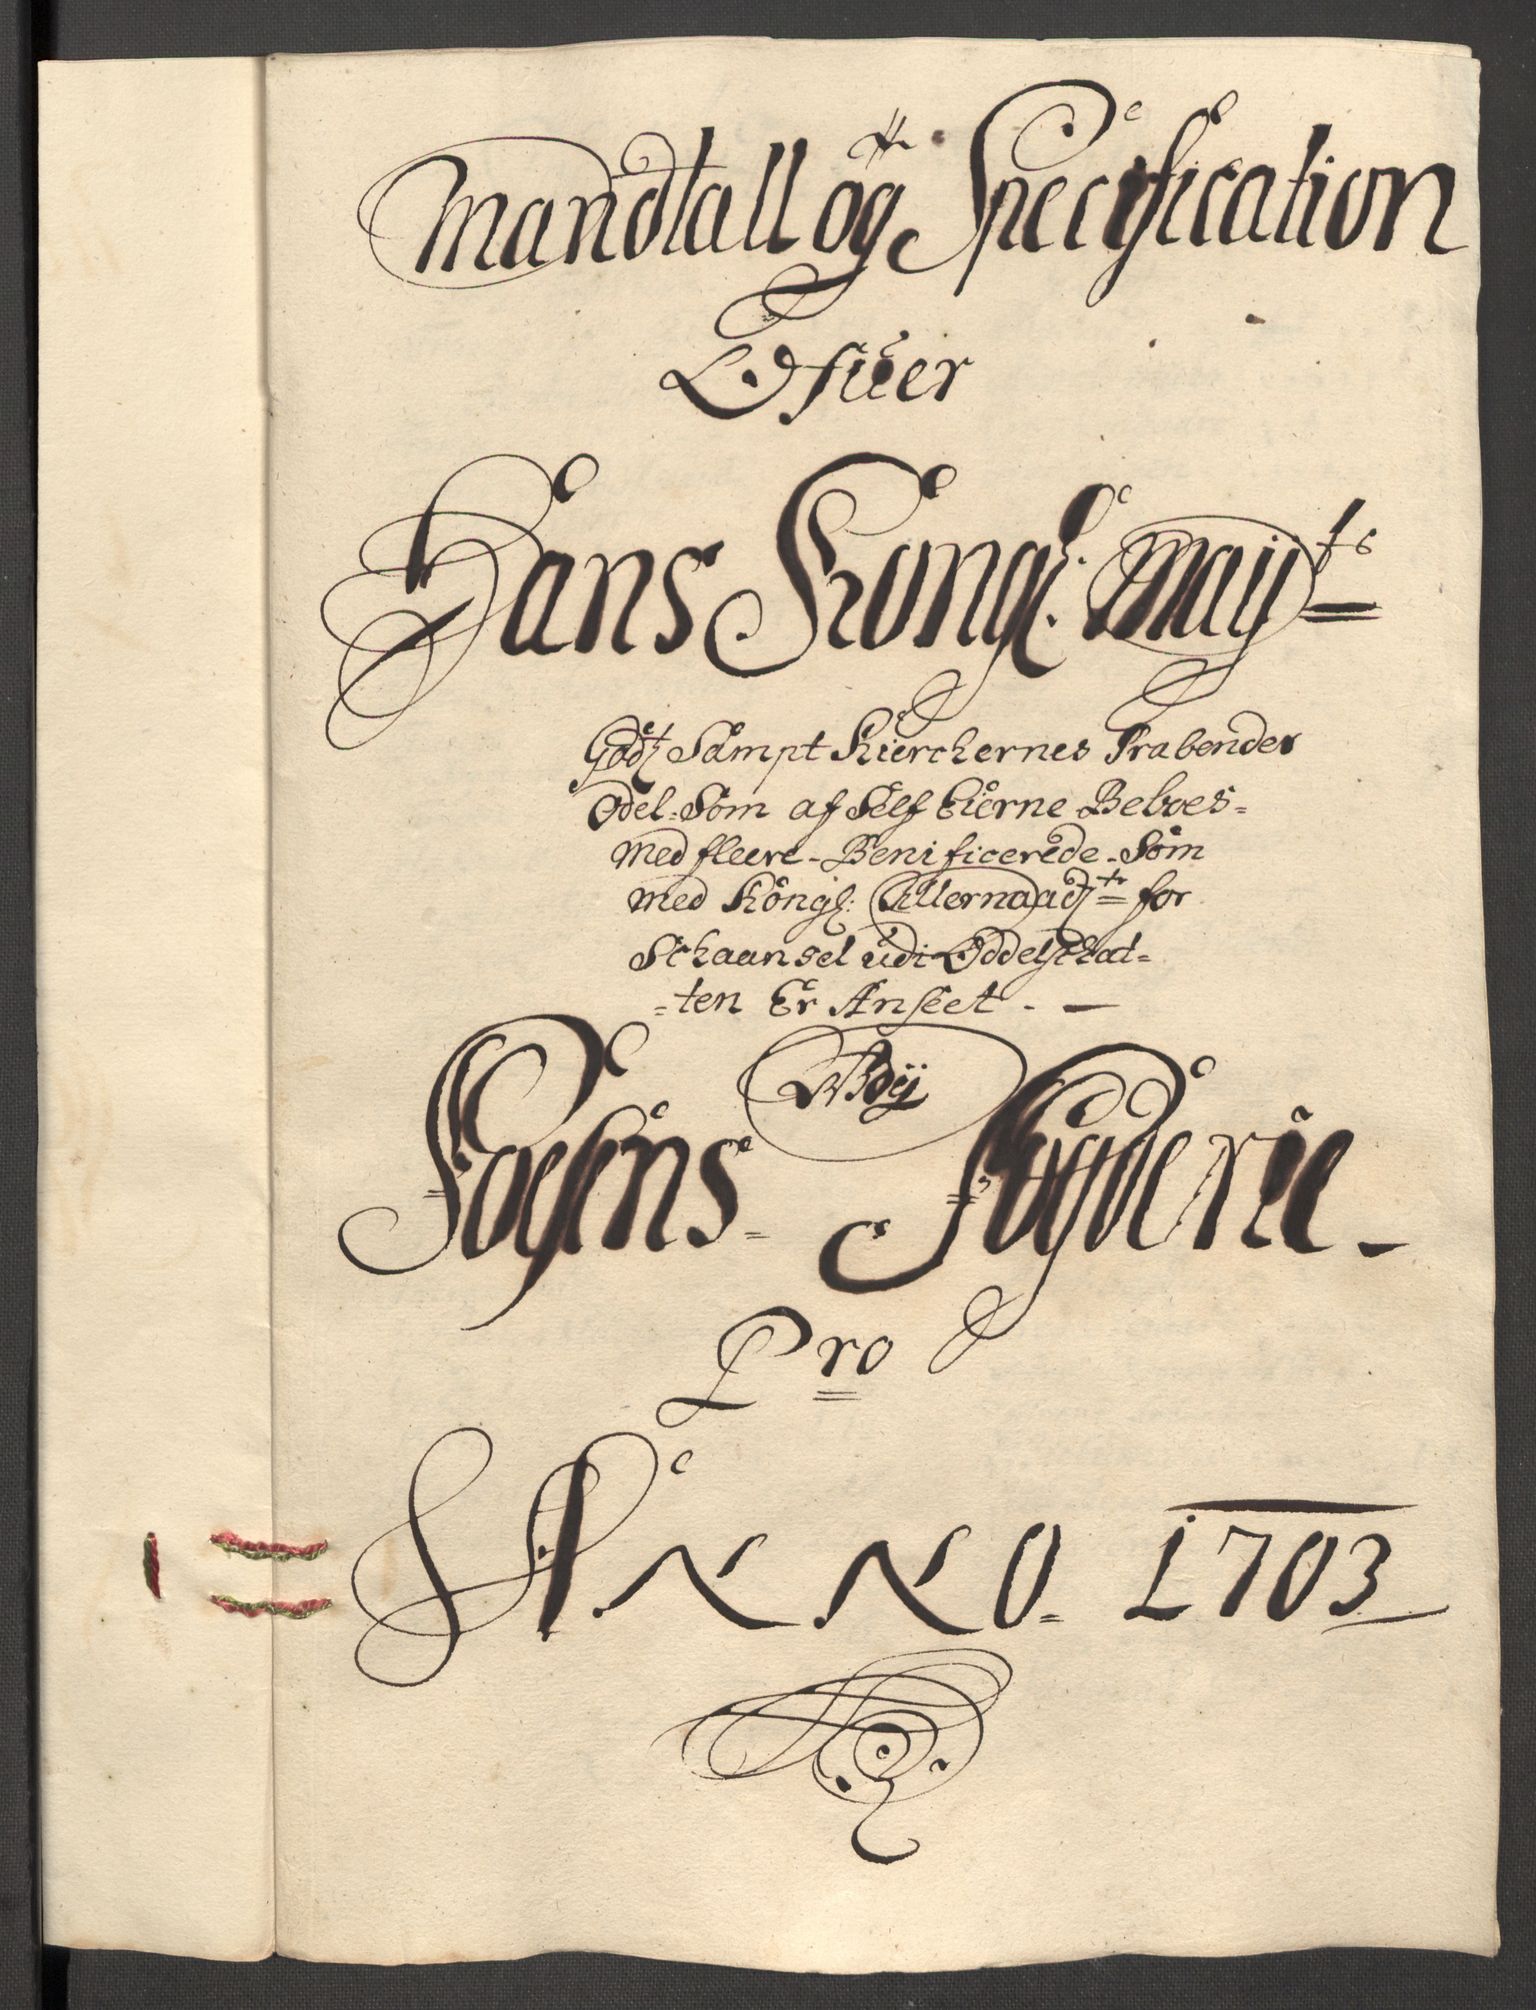 Mandtall og Specification
Ofuer
Hans Kongl. May.ts
Godtz Sampt Kierckernes Præbender
Odel-Som af Self Eierne Beboes-
Med fleere-Benificerede-Som
med Kongl: Allernaadtz for
Schaansel udi Oddelschat-
-ten Er Anseet.-
Udij
Fosens- Fogderie-
Pro
ANNO- 1703